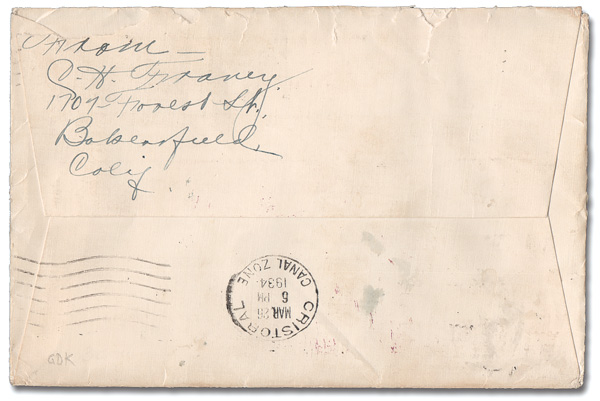 From —
O. H. Franey.
1707 Forest St,
Bakersfield,
Calif
CRISTOBAL
MAR 26
6 PM
1934
CANAL ZONE
GDK